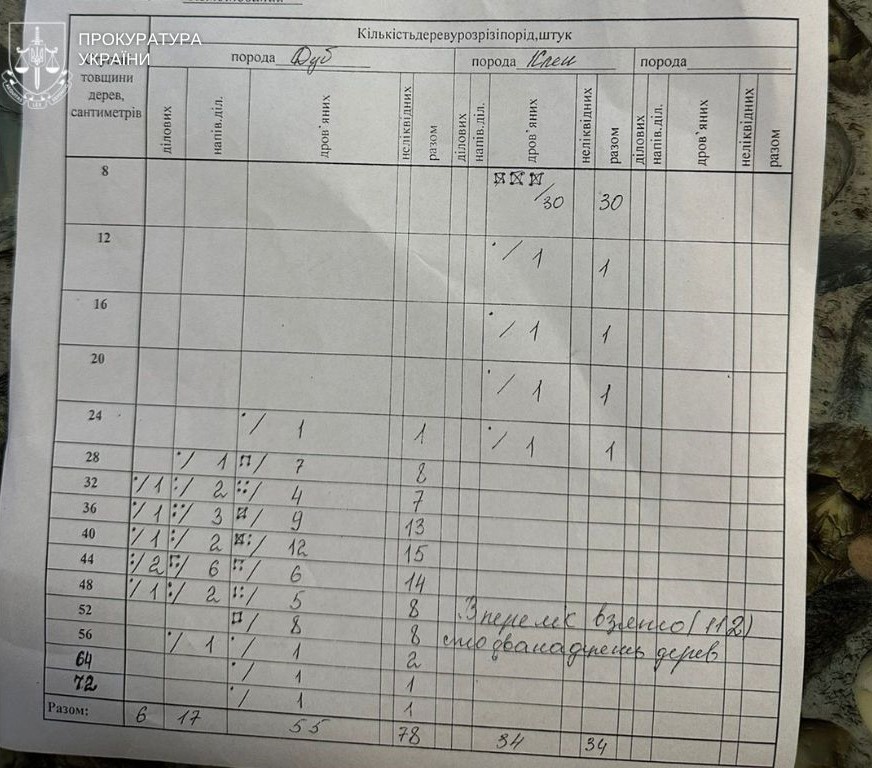 ПРОКУРАТУРА
УКРАЇНИ
Кількістьдеревурозрізіпорід,штук
порода Дуб порода Клен порода
товщини
дерев,
сантиметрів
ділових напів.діл. дров'яних неліквідних разом ділових напів.діл. дров'яних неліквідних разом ділових напів.діл. дров'яних неліквідних разом
8 /30 30
12 / 1 1
16 / 1 1
20 / 1 1
24 / 1 1 / 1 1
28 / 1 / 7 8
32 / 1 / 2 / 4 7
36 / 1 / 3 / 9 13
40 / 1 / 2 / 12 15
44 / 2 / 6 / 6 14
48 / 1 / 2 / 5 8
52 / 8 8
56 / 1 / 1 2
64 / 1 1
72 / 1 1
З взято (112)
дерев
Разом: 6 17 55 78 34 34